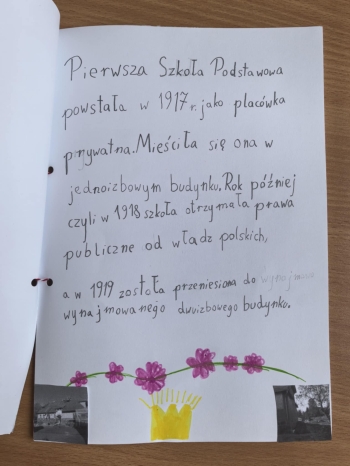 Pierwsza Szkoła Podstawowa
powstała w 1917 r. jako placówka
prywatna. Mieściła się ona w
jednoizbowym budynku. Rok później
czyli w 1918 szkoła otrzymała prawa
publiczne od władz polskich,
a w 1919 zostoła przeniesiona do
wynajmowanego dwuizbowego budynku.